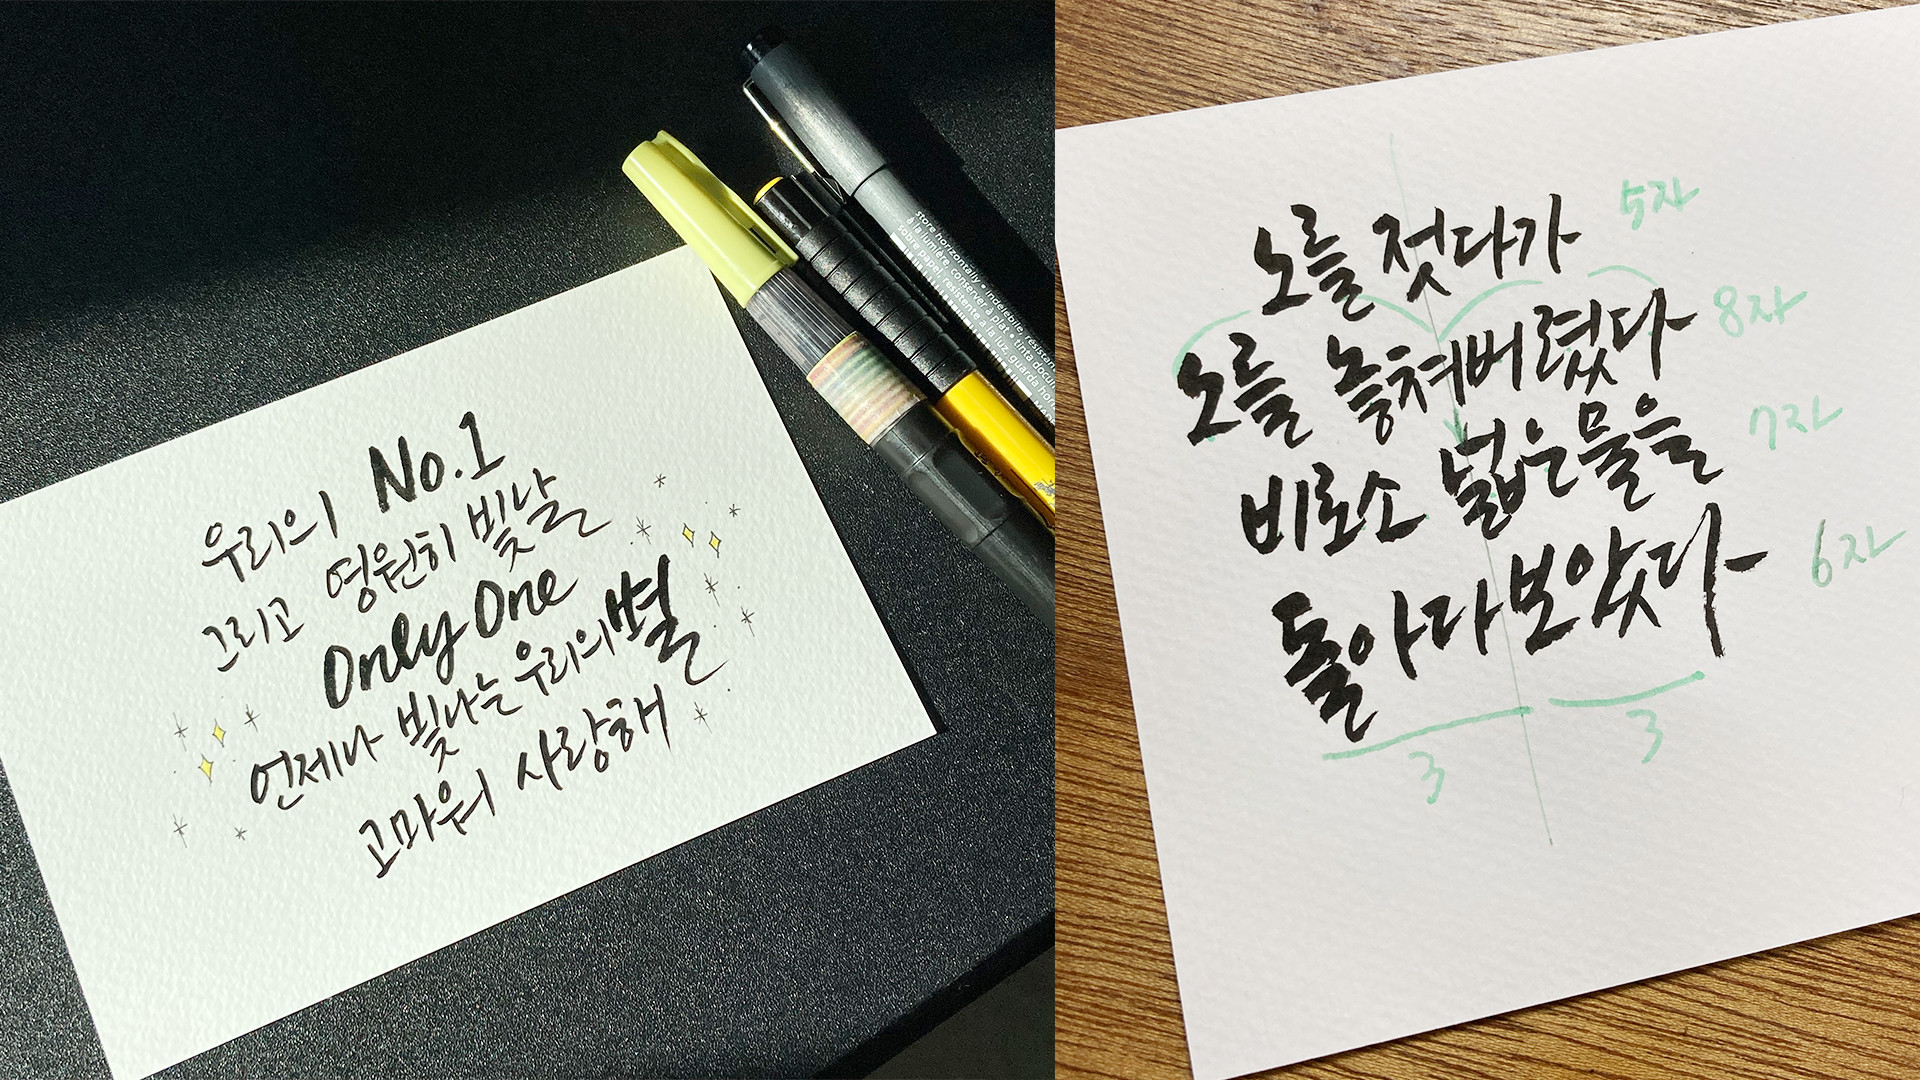 우리의 No.1
그리고 영원히 빛날
Only One
언제나 빛나는 우리의 별
고마워 사랑해
store horizontally • indelebile, résistan
à la lumière, conserver à plat • tinta docu
sobre papel, resistente a la luz, guarda hor
노를 젓다가 5자
노를 놓쳐버렸다 8자
비로소 넓은 물을 7자
돌아다보았다 6자
3 3